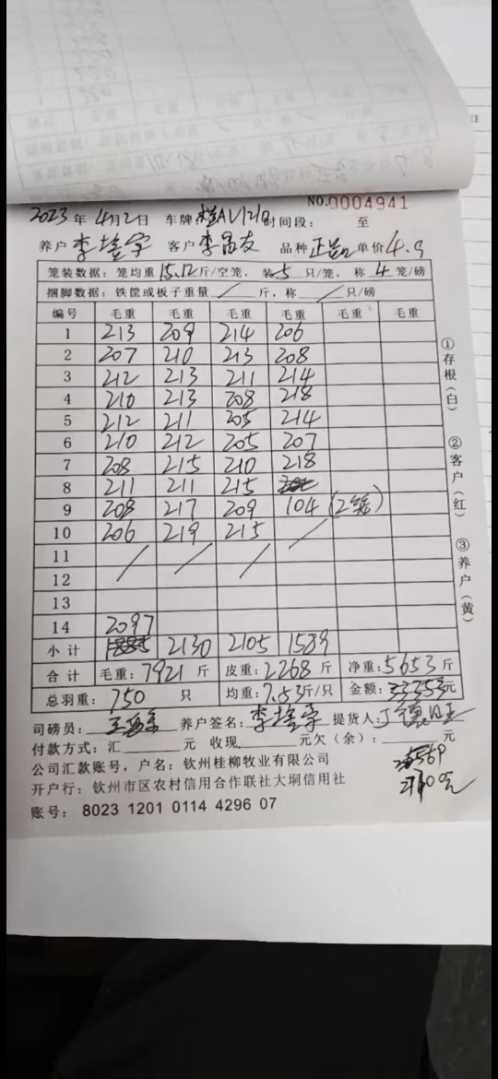 NO.0004941
2023年 4月2日 车牌 桂AV121B 时间段: 至
养户 李 宇 客户 李昌友 品种 单价 4.9
笼装数据: 笼均重 15.12 斤/空笼, 装 5 只/笼, 称 4 笼/磅
捆脚数据: 铁筐或板子重量 / 斤, 称 / 只/磅
编号 毛重 毛重 毛重 毛重 毛重 毛重
1 213 209 214 206
2 207 210 213 208
3 212 213 211 214
4 210 213 208 218
5 212 211 205 214
6 210 212 205 207
7 208 215 210 218
8 211 211 215
9 208 217 209 104 (2笼)
10 206 219 215 /
11 / / /
12
13
14 2097
小计 2130 2105 1589
合计 毛重: 7921 斤 皮重: 2268 斤 净重: 5653 斤
总羽重: 750 只 均重: 7.53 斤/只 金额: 元
司磅员: 王 养户签名: 李 宇 提货人 丁德旺
付款方式: 汇 元 收现 元欠(余): 元
公司汇款账号, 户名: 钦州桂柳牧业有限公司
开户行: 钦州市区农村信用合作联社大垌信用社
账号: 8023 1201 0114 4296 07
①存根(白)
②客户(红)
③养户(黄)